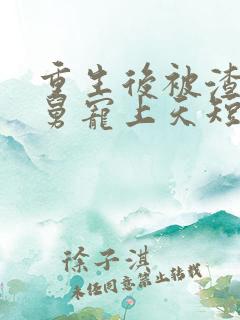 重生後被渣
舅寵上天短
徐子淇
未经同意禁止转载